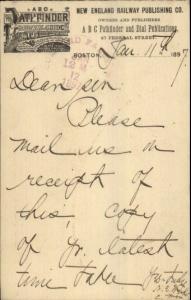 ABC
PATHFINDER
NEW ENGLAND RAILWAY PUBLISHING CO.
OWNERS AND PUBLISHERS
A B C Pathfinder and Dial Publications
67 FEDERAL STREET
BOSTON, Jan. 11th 1897
12 M
12
Dear sir:
Please
mail us on
receipt of
this, copy
of yr. latest
time table